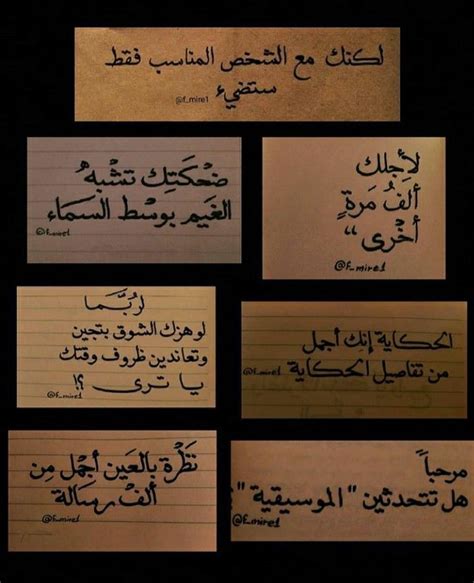 لكنك مع الشخص المناسب فقط
ستضيء
@f_mire1
لأجلك
ألفُ مَرةٍ
أخْرى “
@f_mire1
ضحْكَتِك تشْبهُ
الغيم بوسْط السماء
@f_mire1
لرُبَّما
لو هزك الشوق بتجين
وتعاندين ظروف وقتك
يا ترى ؟!
@f_mire1
الحكاية إنك أجمل
من تفاصيل الحكاية
@f_mire1
نَظْرة بالعين أجْمل مِن
ألفْ رسالة
@f_mire1
مرحباً
هل تتحدثين "الموسيقية"؟
@f_mire1